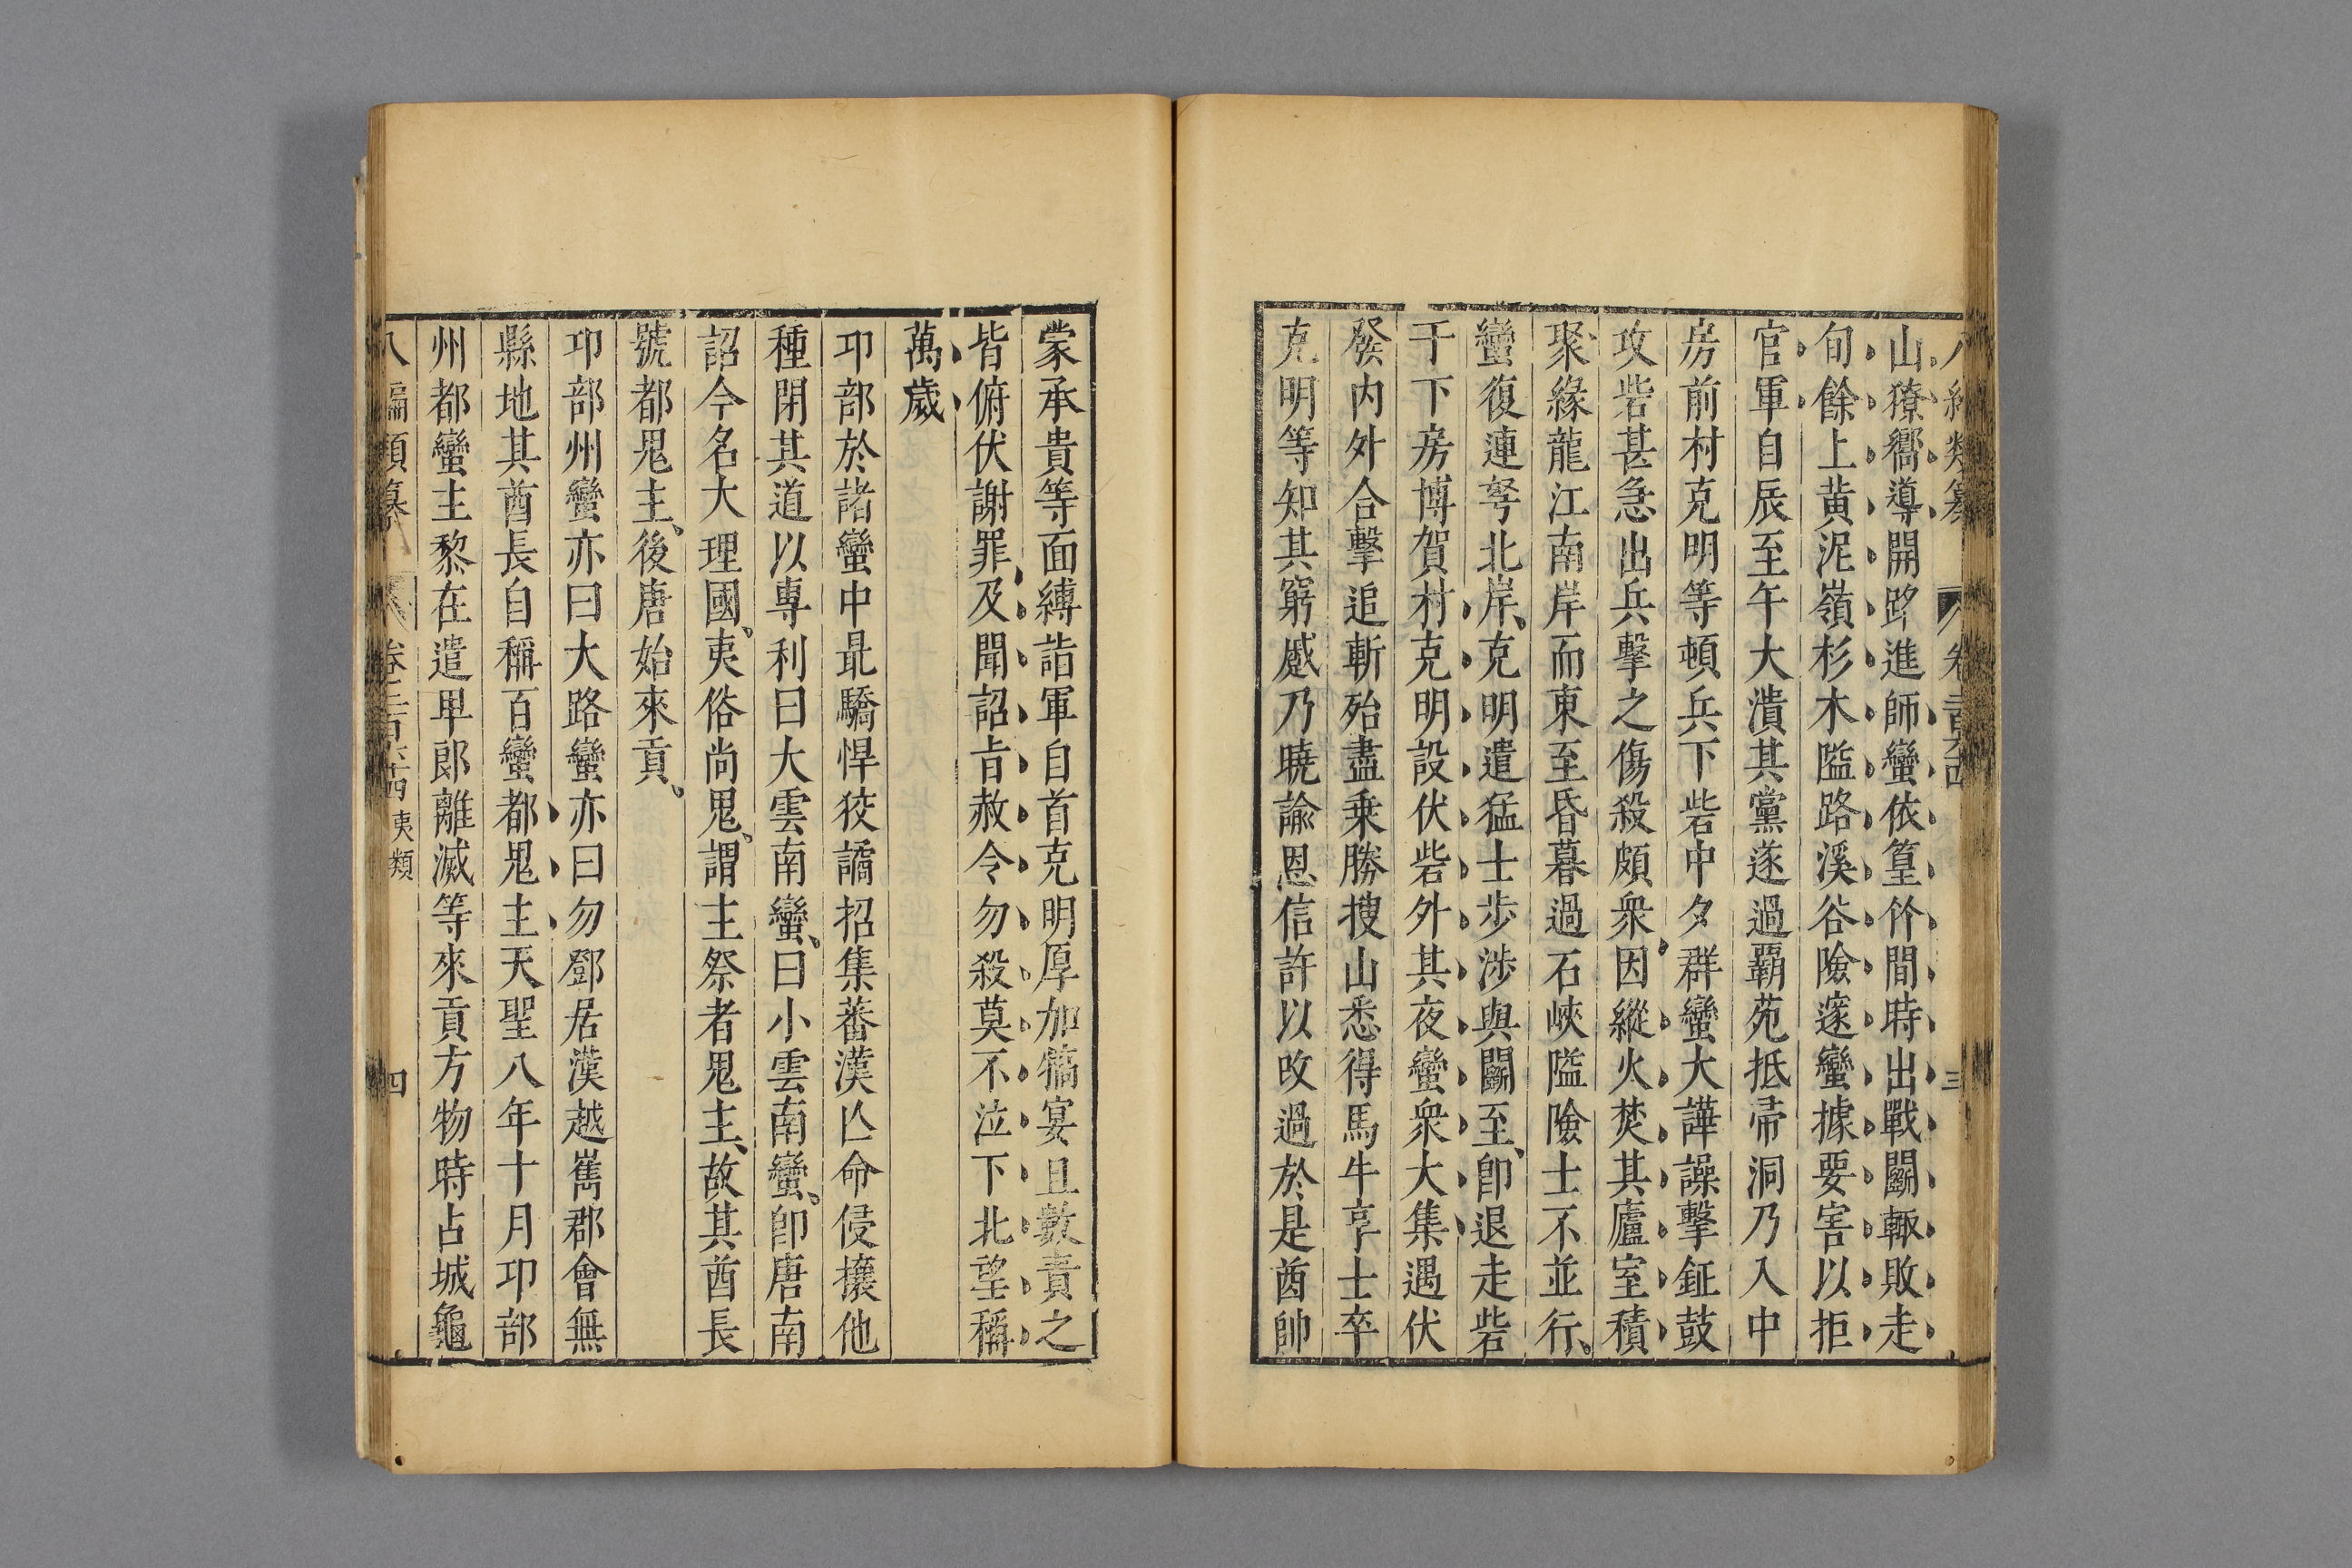 山獠嚮導開路進師蠻依篁竹間時出戰鬭輙敗走
旬餘上黄泥嶺杉木隘路溪谷險邃蠻據要害以拒
官軍自辰至午大潰其黨遂過覇苑抵帚洞乃入中
房前村克明等頓兵下砦中夕群蠻大譁譟擊鉦鼓
攻砦甚急出兵擊之傷殺頗衆因縱火焚其廬室積
聚緣龍江南岸而東至昏暮過石峽隘險士不並行
蠻復連弩北岸克明遣猛士步涉與鬭至卽退走砦
于下房博賀村克明設伏砦外其夜蠻衆大集遇伏
發内外合擊追斬殆盡乗勝搜山悉得馬牛享士卒
克明等知其窮慼乃曉諭恩信許以改過於是酋帥
蒙承貴等面縛詣軍自首克明厚加犒宴且數責之
皆俯伏謝罪及聞詔旨赦令勿殺莫不泣下北望稱
萬歲
卭部於諸蠻中最驕悍狡譎招集蕃漢亾命侵攘他
種閉其道以專利曰大雲南蠻曰小雲南蠻卽唐南
詔今名大理國夷俗尚鬼謂主祭者鬼主故其酋長
號都鬼主後唐始來貢
卭部州蠻亦曰大路蠻亦曰勿鄧居漢越嶲郡會無
縣地其酋長自稱百蠻都鬼主天聖八年十月卭部
州都蠻主黎在遣卑郎離滅等來貢方物時占城龜
八編類纂 卷二百六十四 夷類 四